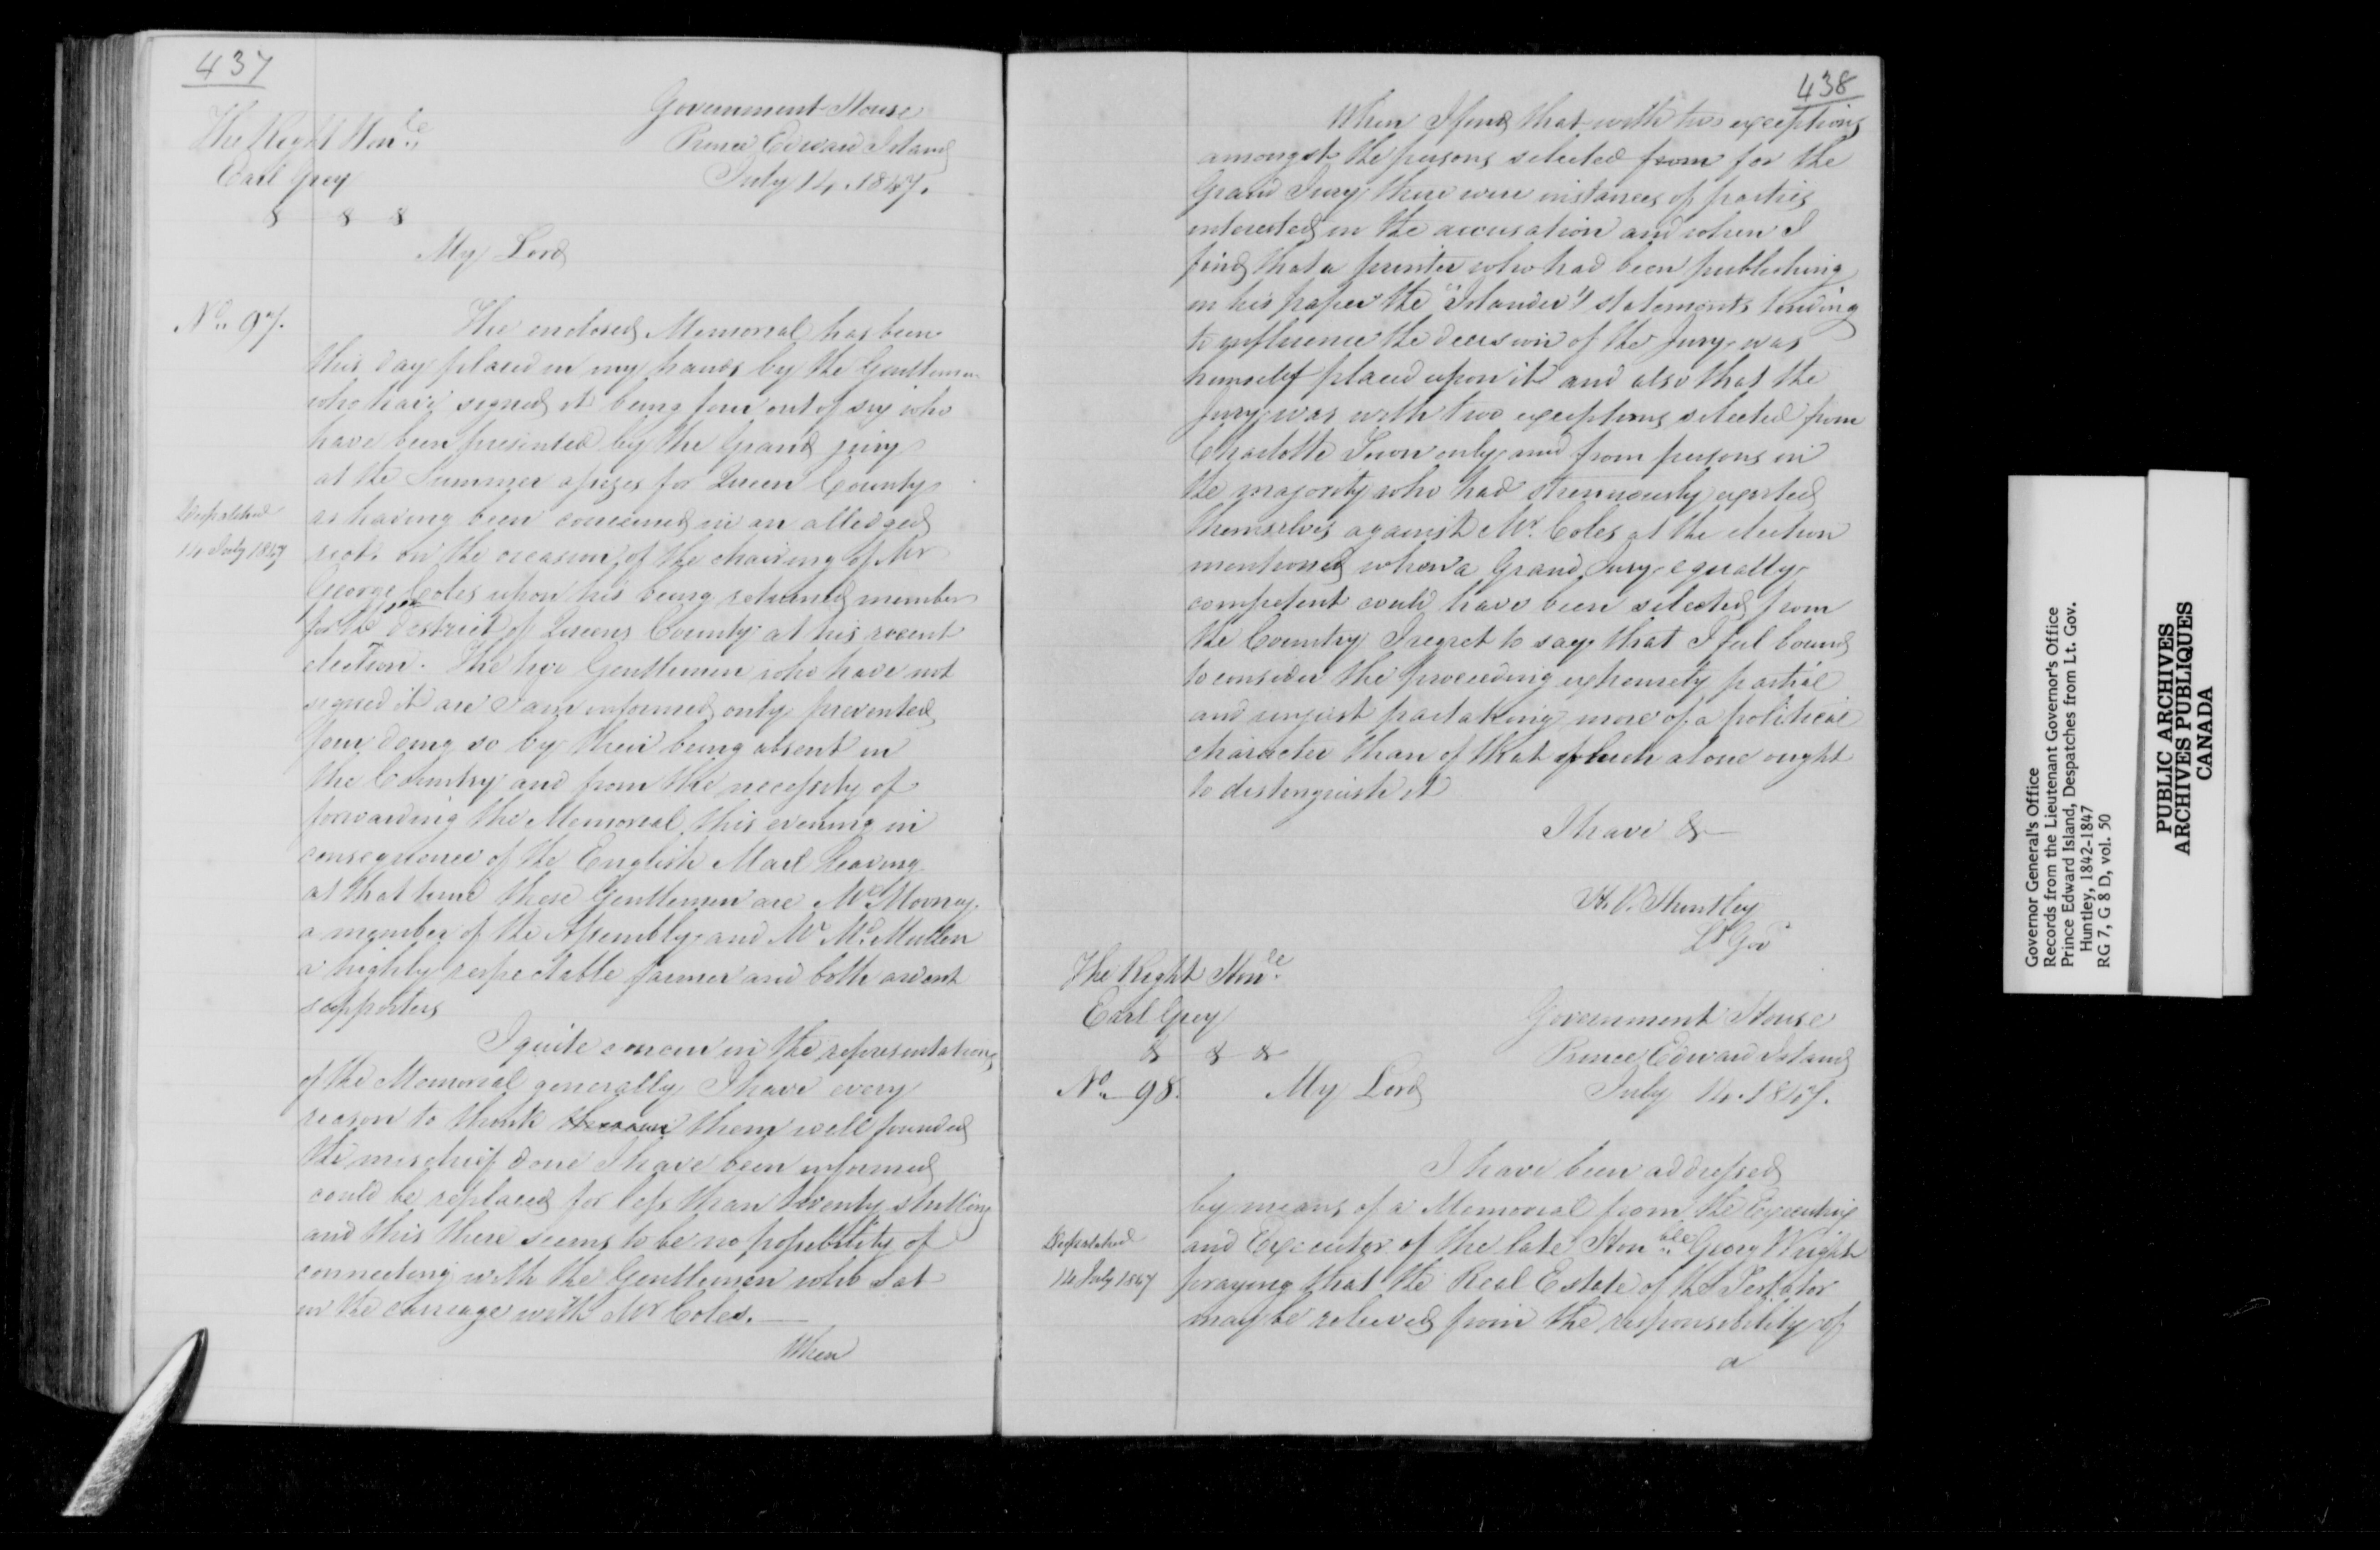 437
Government House
The Right Honle
Prince Edward Island
Earl Grey
July 14. 1847.
& & &
My Lord
No. 97.
The enclosed Memorial has been
this day placed in my hands by the Gentlemen
who have signed it being four out of six who
have been presented by the Grand jury
at the Summer assizes for Queen County
Despatched
14 July 1847
as having been concerned in an alledged
riot. on the occasion of the chairing of Mr
George Coles upon his being returned member
for the district of Queens County at his recent
election. The two Gentlemen who have not
signed it are I am informed only prevented
from doing so by their being absent in
the Country and from the necessity of
forwarding the Memorial this evening in
consequence of the English Mail leaving
at that time these Gentlemen are Mr
a member of the Assembly and Mr McMullen
a highly respectable farmer and both ardent
supporters
I quite concur in the representations
of the Memorial generally I have every
reason to think them well founded
the mischief done I have been informed
could be replaced for less than twenty shillings
and this there seems to be no possibility of
connecting with the Gentlemen who sat
in the carriage with Mr Coles.
When
438
When I find that with two exceptions
amongst the persons selected from for the
Grand Jury there were instances of parties
interested in the accusation and when I
find that a printer who had been publishing
in his paper the "Islander" statements tending
to influence the decision of the Jury was
himself placed upon it and also that the
Jury was with two exceptions selected from
Charlotte Town only and from persons in
the majority who had strenuously exerted
themselves against Mr. Coles at the election
mentioned when a Grand Jury equally
competent could have been selected from
the Country I regret to say that I feel bound
to consider the proceeding extremely partial
and unjust partaking more of a political
character than of that which alone ought
to distinguish it
I have &
H. V. Huntley
Lt Gov
The Right Honle
Earl Grey
Government House
& & &
Prince Edward Island
No. 98.
My Lord
July 14. 1847.
I have been addressed
by means of a Memorial from the Executrix
Despatched
14 July 1847
and Executor of the late Honble George Wright
praying that the Real Estate of the Testator
may be relieved from the responsibility of
a
Governor General's Office
Records from the Lieutenant Governor's Office
Prince Edward Island, Despatches from Lt. Gov.
Huntley, 1842-1847
RG 7, G 8 D, vol. 50
PUBLIC ARCHIVES
ARCHIVES PUBLIQUES
CANADA